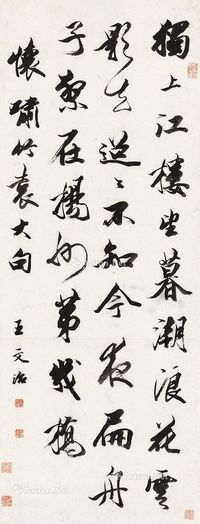 獨上江樓望暮潮浪花雲
影去迢〻不知今夜扁舟
子繫在揚州第幾橋
懷嘯竹袁大句
王文治